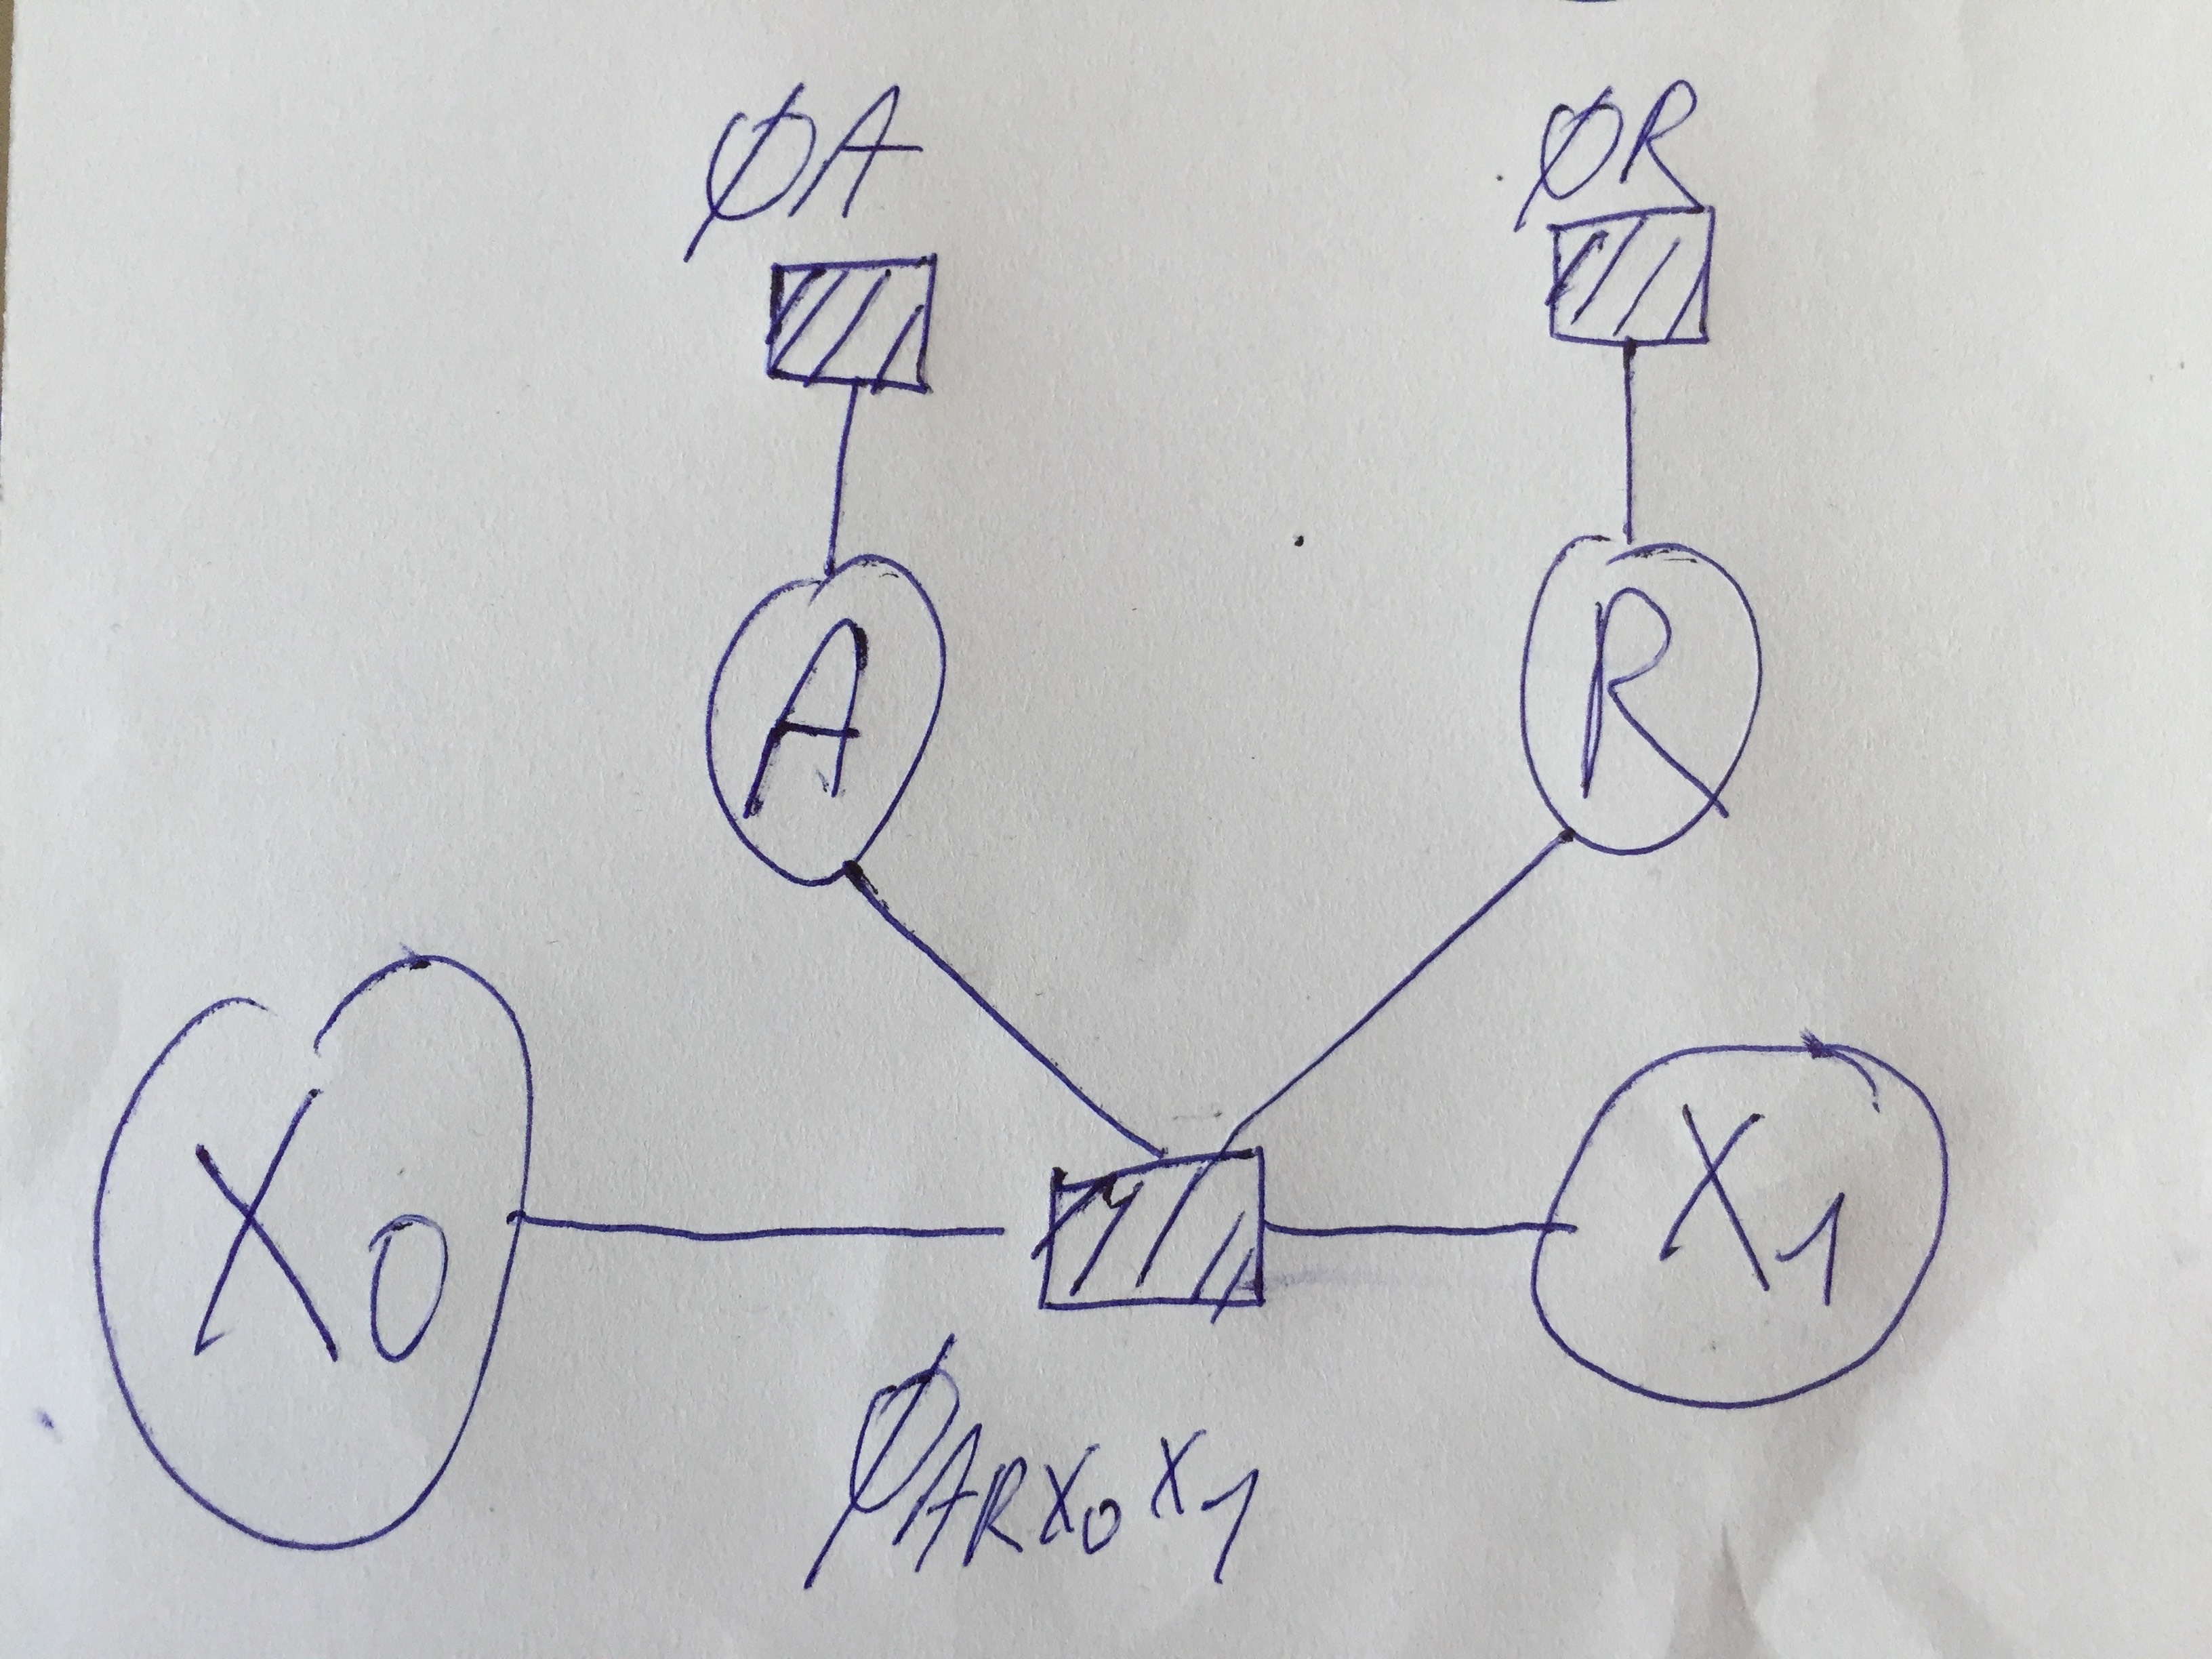 ϕA
ϕR
A
R
X0
X1
ϕARX0X1